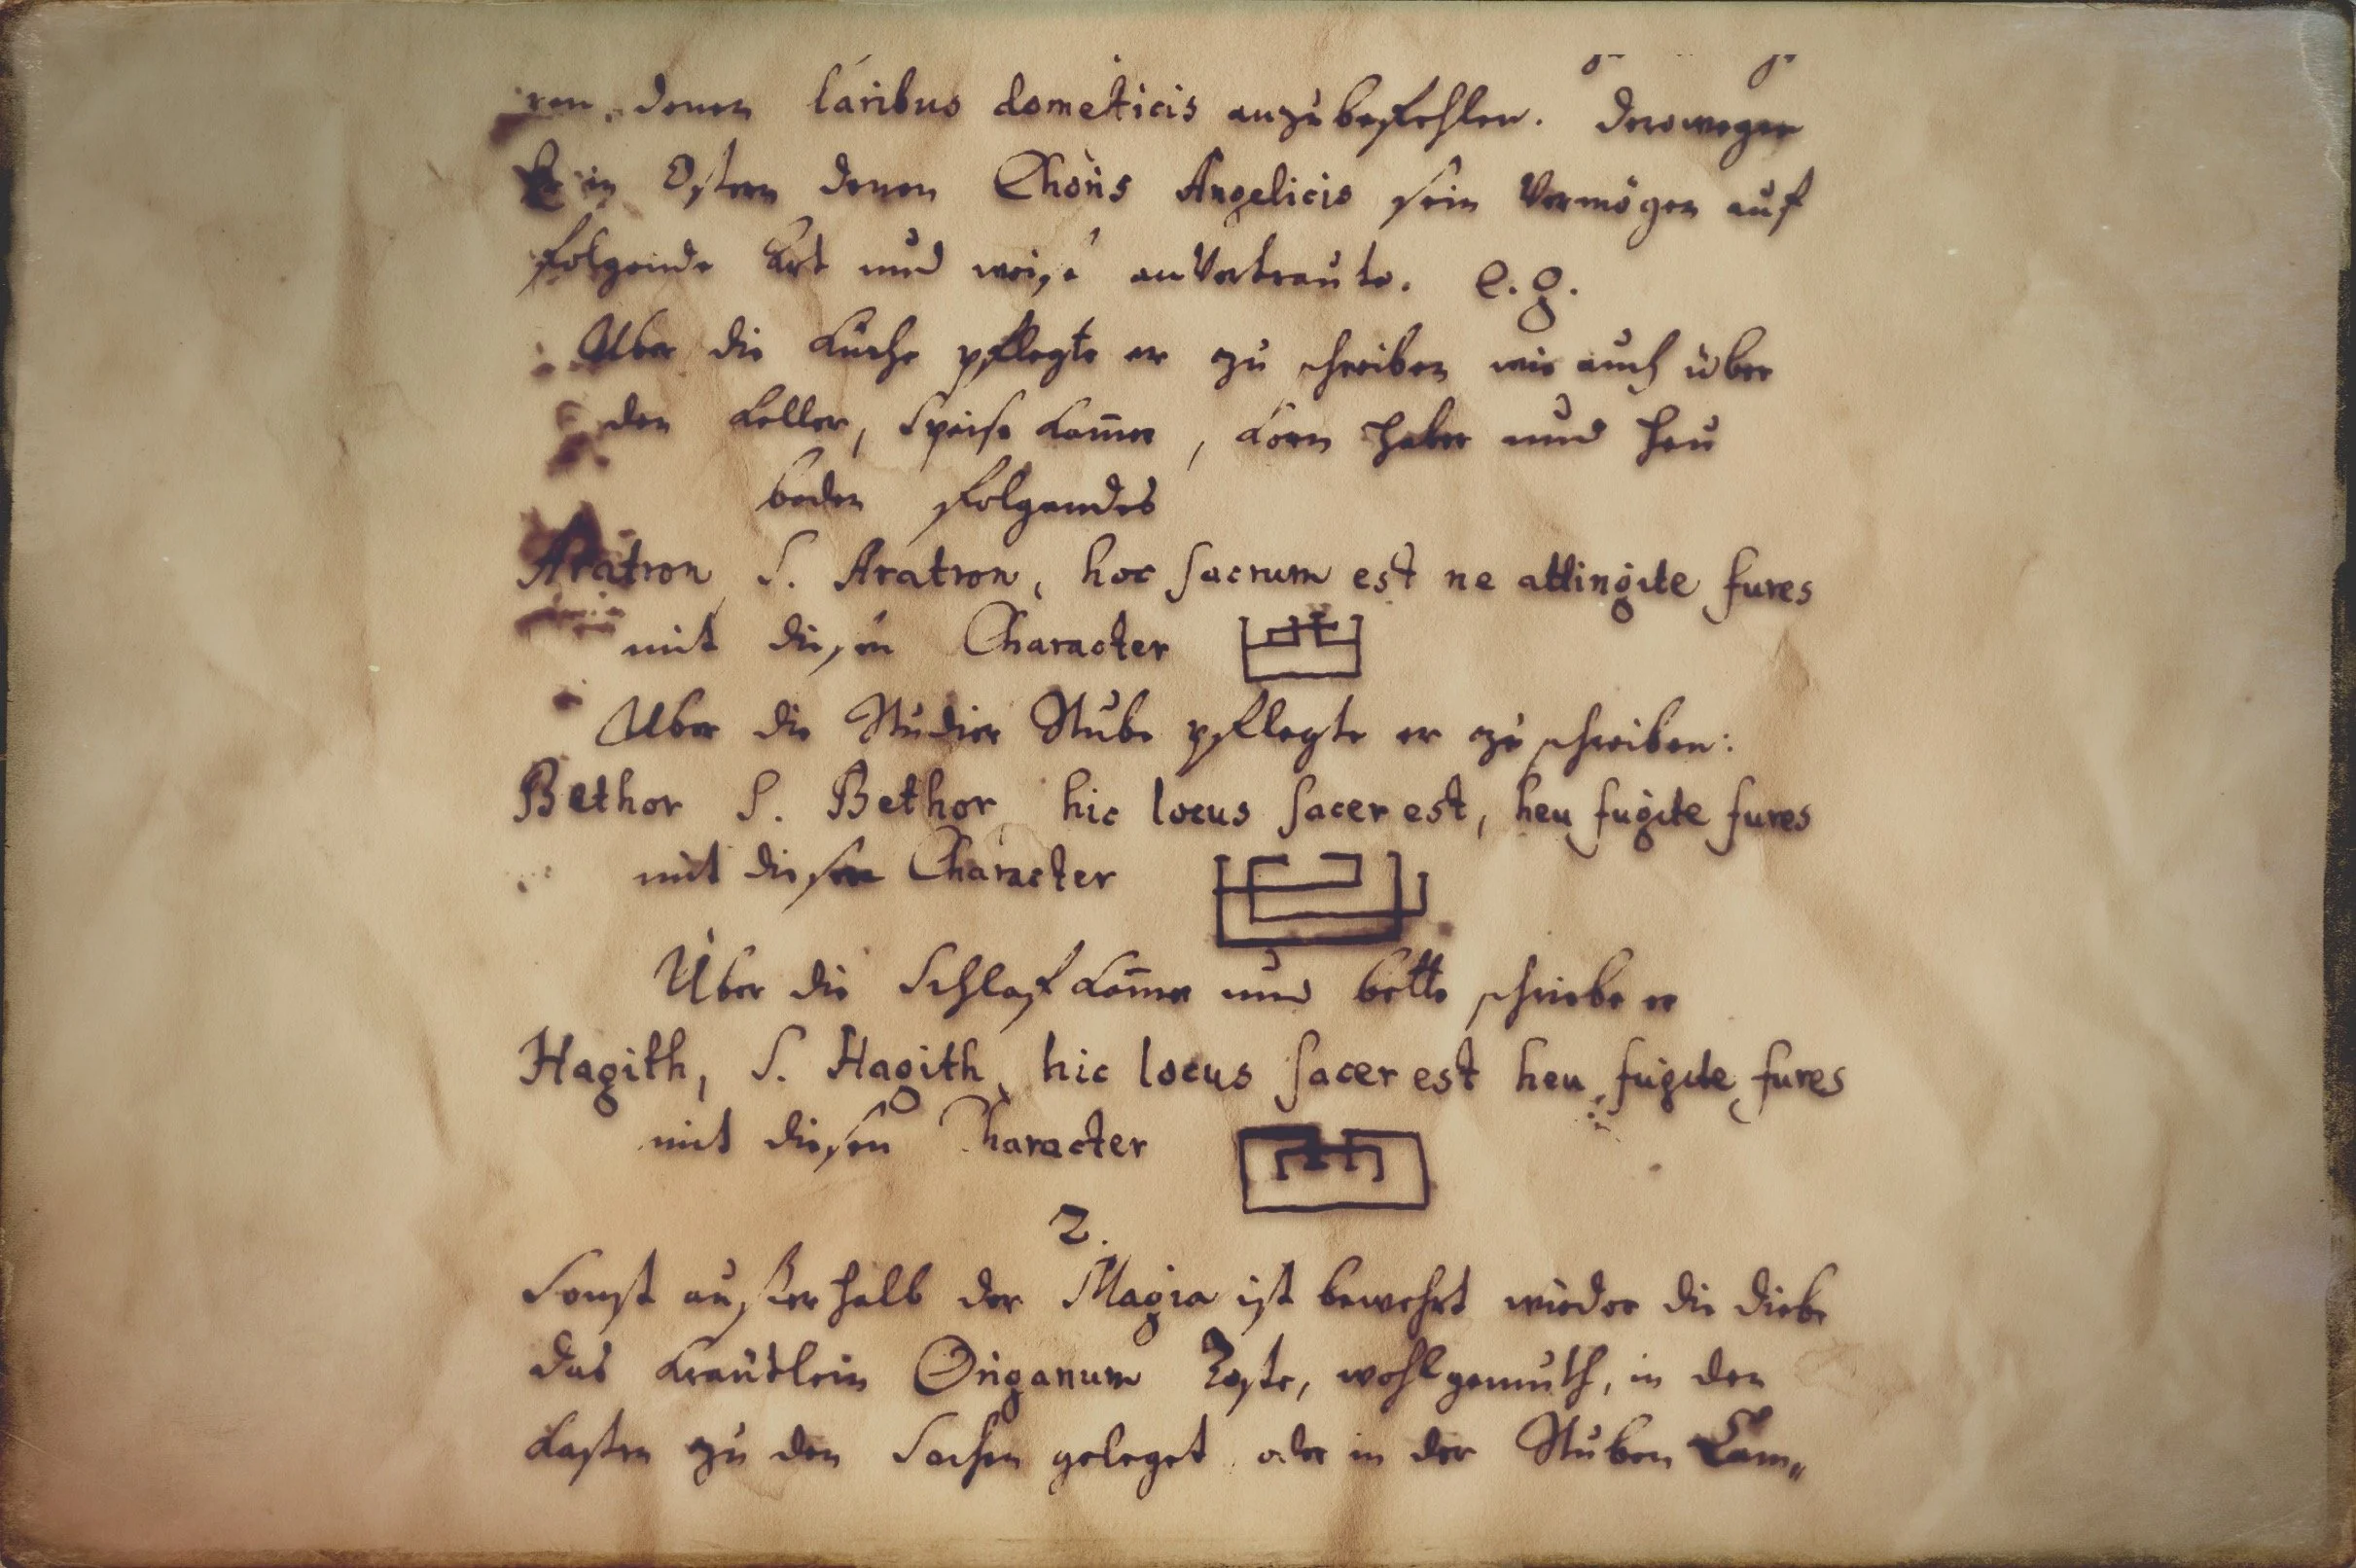 ren denen laribus domesticis anzubefehlen. Deroweger
Er in Ostern denen Choris Angelicis sein Vermögen auf
folgende Art und weise anVertraute. e.g.
Uber die Küche pflegte er zu schreiben wie auch über
den Keller, Speise Kam̅er, Korn Haber und Heu
boden folgendes
Aratron S. Aratron, hoc sacrum est ne attingite fures
mit diesen Character
Uber die Studier Stube pflegte er zu schreiben:
Bethor S. Bethor, hic locus sacer est, heu fugite fures
mit diesen Character
Über die Schlaf Kam̅er und bette schriebe er
Hagith, S. Hagith, hic locus sacer est heu fugite fures
mit diesen Character
2.
Sonst außerhalb der Magia ist bewehrt wieder die diebe
das Kräutlein Origanum Toste, wohlgemuth, in den
Kasten zu den Sachen geleget oder in der Stuben Kam„